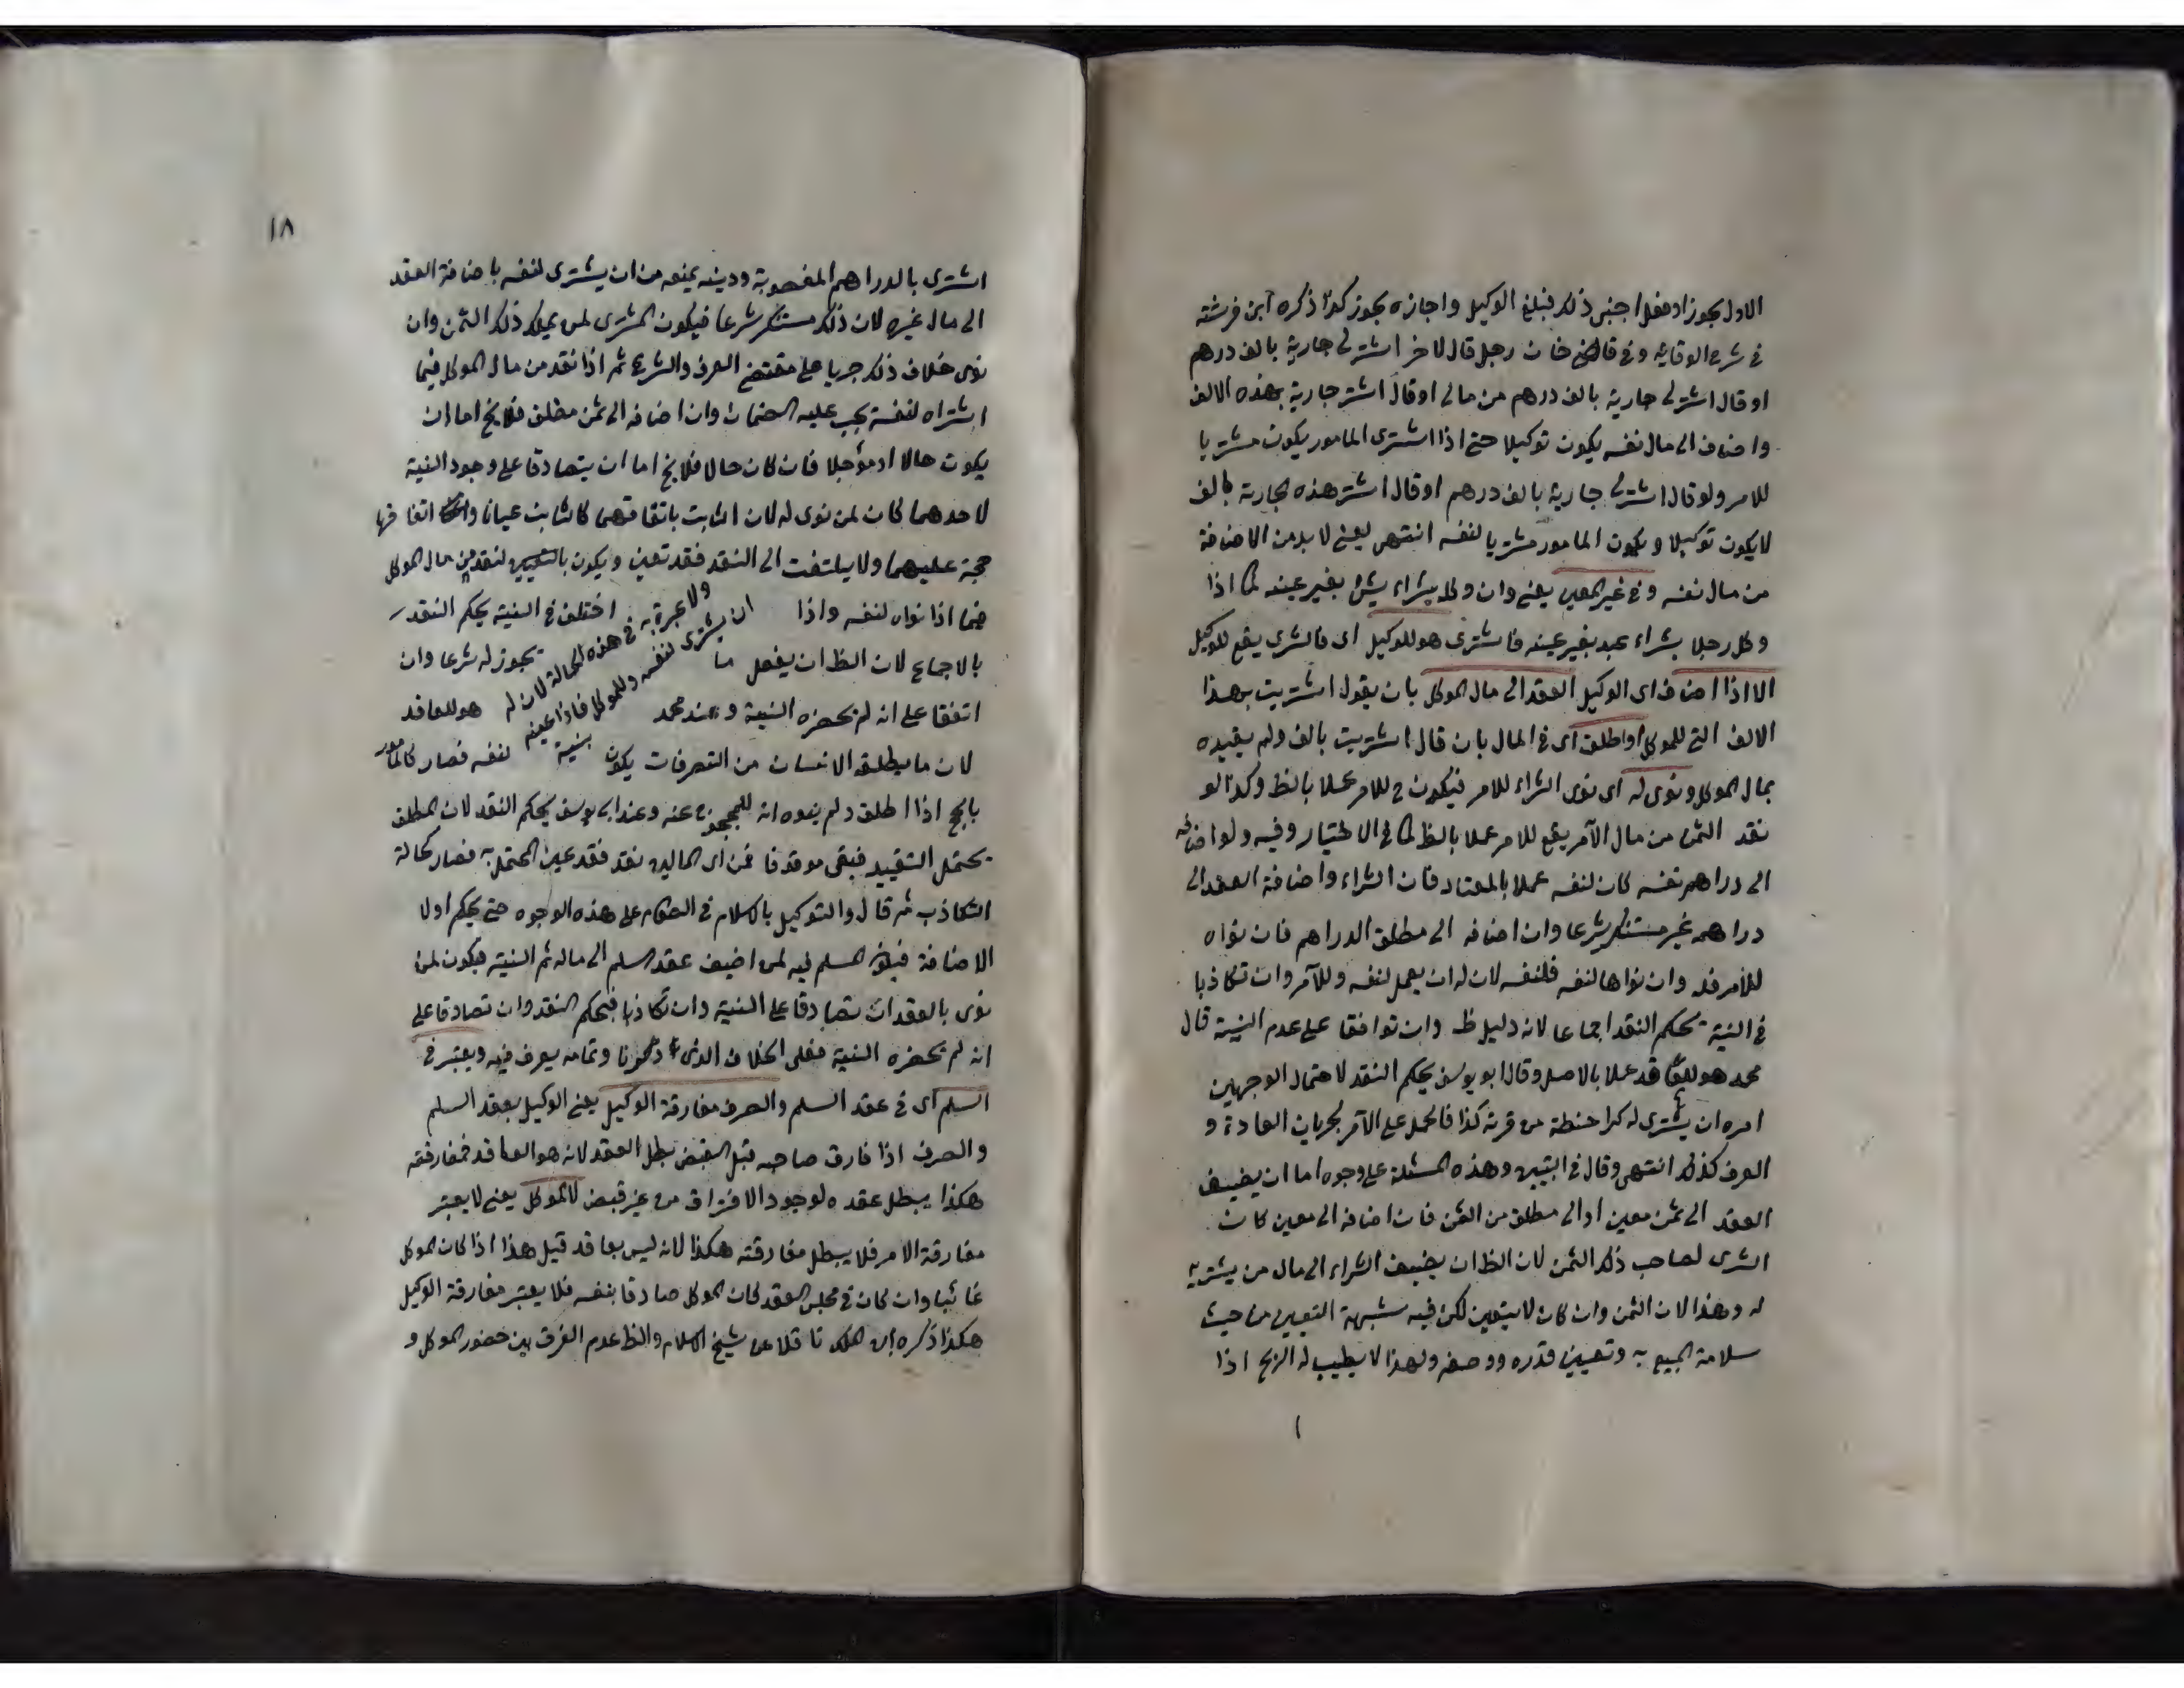 الاول يجوز او فعل اجنبى ذلك فبلغ الوكيل واجازه يجوز كذا ذكره ابن فرشته
فى شرح الوقاية وفى قاضى خان رجل قال لاخر اشتر لى جارية بالف درهم
او قال اشتر لى جارية بالف درهم من مالى او قال اشتر جارية بهذه الالف
واضاف الى مال نفسه يكون توكيلا حتى اذا اشترى المامور يكون مشتريا
للامر ولو قال اشتر لى جارية بالف درهم او قال اشتر هذه الجارية بالف
لا يكون توكيلا ويكون المامور مشتريا لنفسه انتهى يعنى لا بد من الاضافة
من مال نفسه وفى غير المعين يعنى وان وكله بشراء شئ بغير عينه كما اذا
وكل رجلا بشراء عبد بغير عينه فاشترى هو للوكيل اى فالشرى يقع للوكيل
الا اذا اضاف اى الوكيل العقد الى مال الموكل بان يقول اشتريت بهذا
الالف التى للموكل او اطلق اى فى المال بان قال اشتريت بالف ولم يقيده
بمال الموكل ونوى له اى نوى الشراء للامر فيكون ح للامر عملا بالظ وكذا لو
نقد الثمن من مال الآمر يقع للامر عملا بالظ كما فى الاختيار وفيه ولو اضافه
الى دراهم نفسه كان لنفسه عملا بالمعتاد فان الشراء واضافة العقد الى
دراهم غيره مستنكر شرعا وان اضافه الى مطلق الدراهم فان نواه
للآمر فله وان نواها لنفسه فلنفسه لان له ان يعمل لنفسه وللآمر وان تكاذبا
فى النية يحكم النقد اجماعا لانه دليل ظ وان توافقا على عدم النية قال
محمد هو للعاقد عملا بالاصل وقال ابو يوسف يحكم النقد لاحتمال الوجهين
امره ان يشترى له كرا حنطة من قرية كذا فالحمل على الآمر لجريان العادة و
العرف كذلك انتهى وقال فى التبيين وهذه المسئلة على وجوه اما ان يضيف
العقد الى ثمن معين او الى مطلق من الثمن فان اضافه الى معين كان
الشرى لصاحب ذلك الثمن لان الظ ان يضيف الشراء الى مال من يشتريه
له وهذا لان الثمن وان كان لا يتعين لكن فيه شبهة التعيين من حيث
سلامة المبيع به وتعيين قدره ووصفه ولهذا لا يطيب له الربح اذا
١٨
اشترى بالدراهم المغصوبة ودينه يمنعه من ان يشترى لنفسه باضافة العقد
الى مال غيره لان ذلك مستنكر شرعا فيكون المشترى لمن يملك ذلك الثمن وان
نوى خلاف ذلك جريا على مقتضى العرف والشرع ثم اذا نقد من مال الموكل فيما
اشتراه لنفسه يجب عليه الضمان وان اضافه الى ثمن مطلق فلا يخ اما ان
يكون حالا او مؤجلا فان كان حالا فلا يخ اما ان يتصادقا على وجود النية
لاحدهما كان لمن نوى له لان الثابت باتفاقهما كالثابت عيانا اتفاقهما
حجة عليهما ولا يلتفت الى النقد فقد تعين ويكون بالتعيين لنقد من مال الموكل
فيما اذا نواه لنفسه واذا اختلف فى النية يحكم النقد
ولا عبرة به فى هذه الحالة لان له
ان يشترى لنفسه وللموكل فاذا عينه
بالاجماع لان الظ ان يفعل ما يجوز له شرعا وان
اتفقا على انه لم تحضره النية وعند محمد هو للعاقد
لان ما يطلقه الانسان من التصرفات يكون لنفسه فصار كالمامور
بالحج اذا اطلق ولم ينوه انه للمحجوج عنه وعند ابى يوسف يحكم النقد لان المطلق
يحتمل التقييد فبقى موقوفا فمن اى المالين نقد فقد عين المحتمل به فصار كحالة
التكاذب ثم قال والتوكيل بالاسلام فى الطعام على هذه الوجوه حتى يحكم اولا
الاضافة فيكون المسلم فيه لمن اضيف عقد السلم الى ماله ثم النية فيكون لمن
نوى بالعقد ان تصادقا على النية وان تكاذبا فيحكم النقد وان تصادقا على
انه لم تحضره النية فعلى الخلاف الذى ذكرنا وتمامه يعرف فيه ويعتبر فى
السلم اى فى عقد السلم والصرف مفارقة الوكيل يعنى الوكيل بعقد السلم
والصرف اذا فارق صاحبه قبل القبض بطل العقد لانه هو العاقد فمفارقته
هكذا يبطل عقده لوجود الافتراق من غير قبض لا الموكل يعنى لا يعتبر
مفارقة الامر فلا يبطل مفارقته هكذا لانه ليس بعاقد قيل هذا اذا كان الموكل
غائبا وان كان فى مجلس العقد كان الموكل صادقا بنفسه فلا يعتبر مفارقة الوكيل
هكذا ذكره ابن الملك ناقلا عن شيخ الاسلام والظ عدم الفرق بين حضور الموكل و